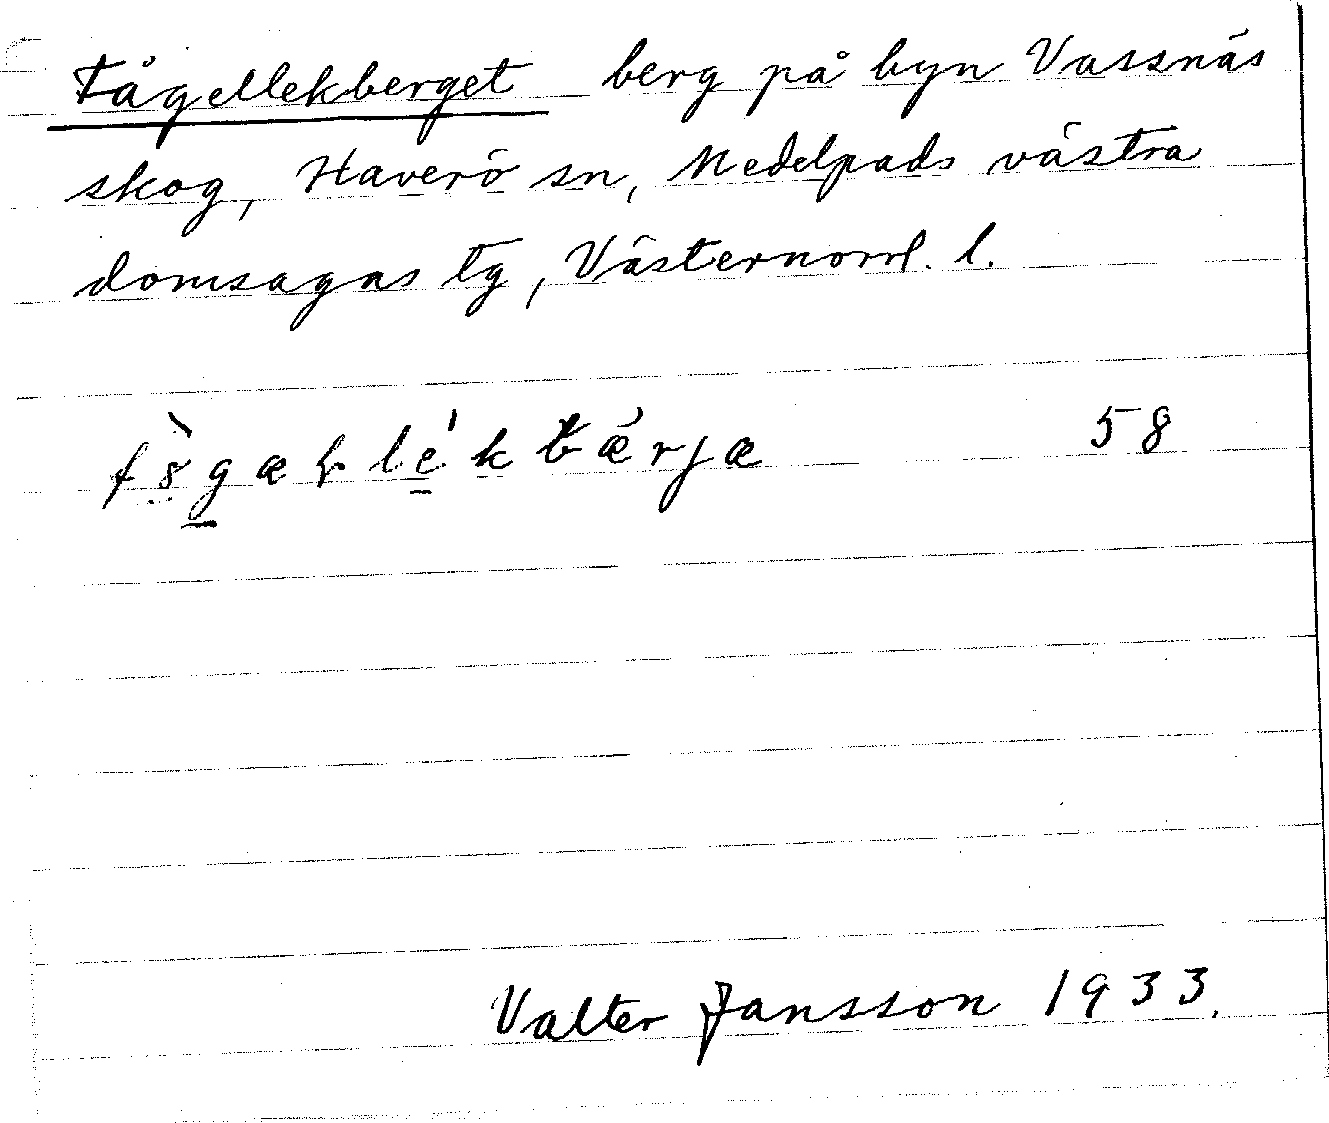 Fågellekberget berg på byn Vassnäs
skog, Haverö sn, Medelpads västra
domsagas tg, Västernorrl. l.
58
Valter Jansson 1933.